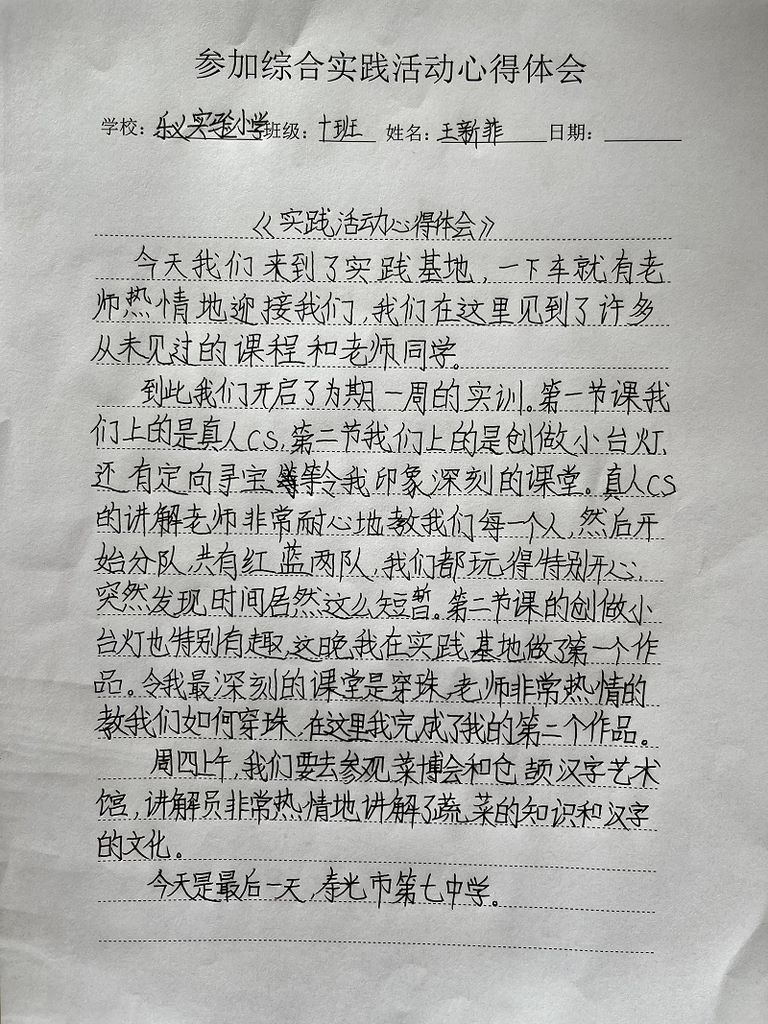 参加综合实践活动心得体会
学校：乐义实验小学班级：十班 姓名：王新菲 日期：
《实践活动心得体会》
今天我们来到了实践基地，一下车就有老
师热情地迎接我们，我们在这里见到了许多
从未见过的课程和老师同学。
到此我们开启了为期一周的实训。第一节课我
们上的是真人CS，第二节我们上的是创做小台灯，
还有定向寻宝等等令我印象深刻的课堂。真人CS
的讲解老师非常耐心地教我们每一个人，然后开
始分队，共有红蓝两队，我们都玩得特别开心，
突然发现时间居然这么短暂。第二节课的创做小
台灯也特别有趣，这晚我在实践基地做了第一个作
品。令我最深刻的课堂是穿珠，老师非常热情的
教我们如何穿珠，在这里我完成了我的第二个作品。
周四上午，我们要去参观菜博会和仓颉汉字艺术
馆，讲解员非常热情地讲解了蔬菜的知识和汉字
的文化。
今天是最后一天，寿光市第七中学。